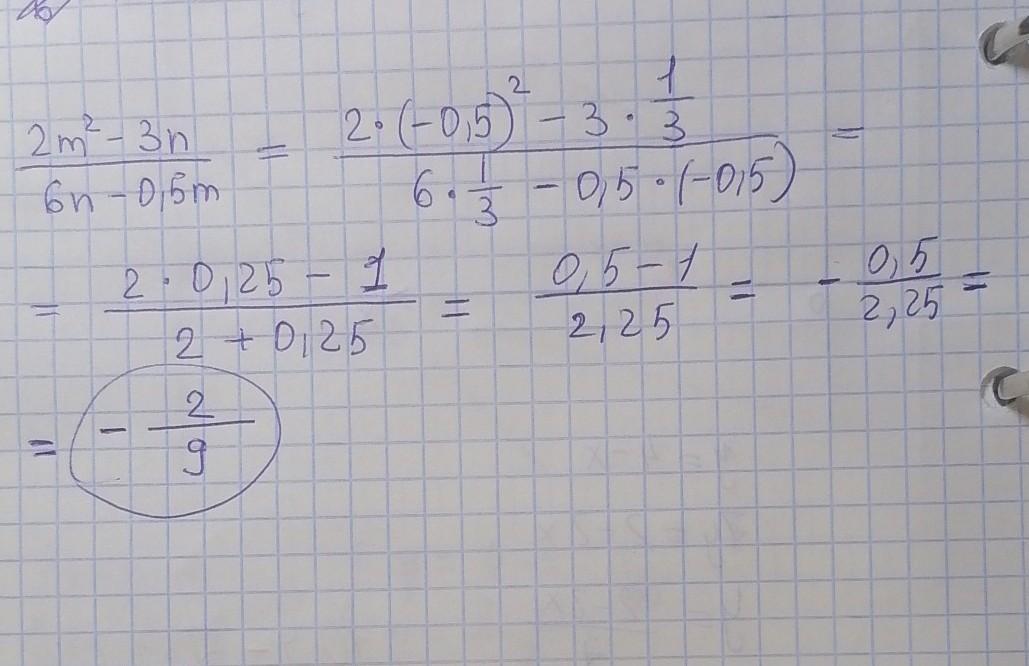 (2m² - 3n)/(6n - 0,5m) = (2·(-0,5)² - 3·1/3)/(6·1/3 - 0,5·(-0,5)) =
= (2·0,25 - 1)/(2 + 0,25) = (0,5 - 1)/(2,25) = - 0,5/2,25 =
= - 2/9